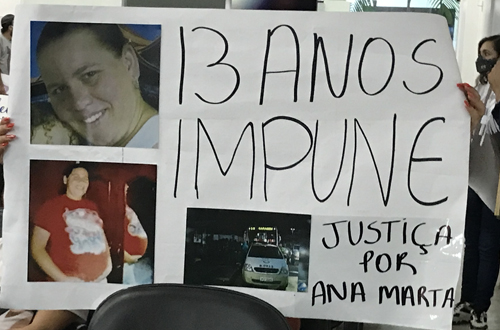 13 ANOS
IMPUNE
JUSTIÇA
POR
ANA MARTA